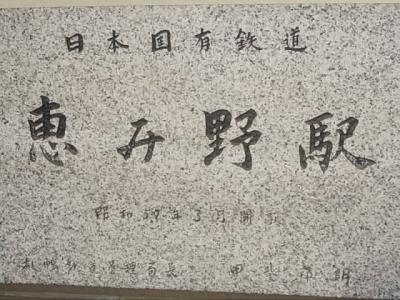 日本国有鉄道
恵み野駅
昭和57年3月開駅
札幌鉄道管理局長